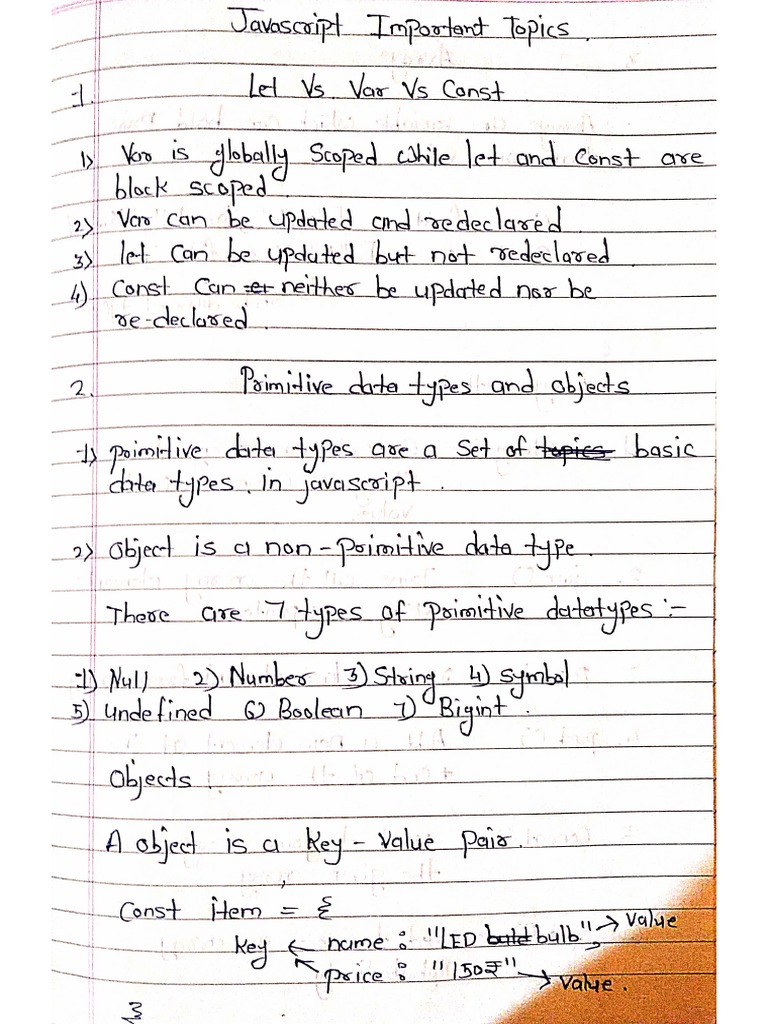 Javascript Important Topics.
1. Let Vs Var Vs Const
1) Var is globally Scoped while let and Const are
block scoped.
2) Var can be updated and redeclared.
3) let Can be updated but not redeclared.
4) Const Can neither be updated nor be
re-declared.
2. Primitive data types and objects
1) primitive data types are a set of topics basic
data types in javascript.
2) Object is a non-primitive data type.
There are 7 types of primitive datatypes :-
1) Null 2) Number 3) String 4) Symbol
5) Undefined 6) Boolean 7) Bigint.
Objects.
A object is a key - value pair.
Const item = {
key ← name : "LED bulb", → value
price : "150₹" → value.
}